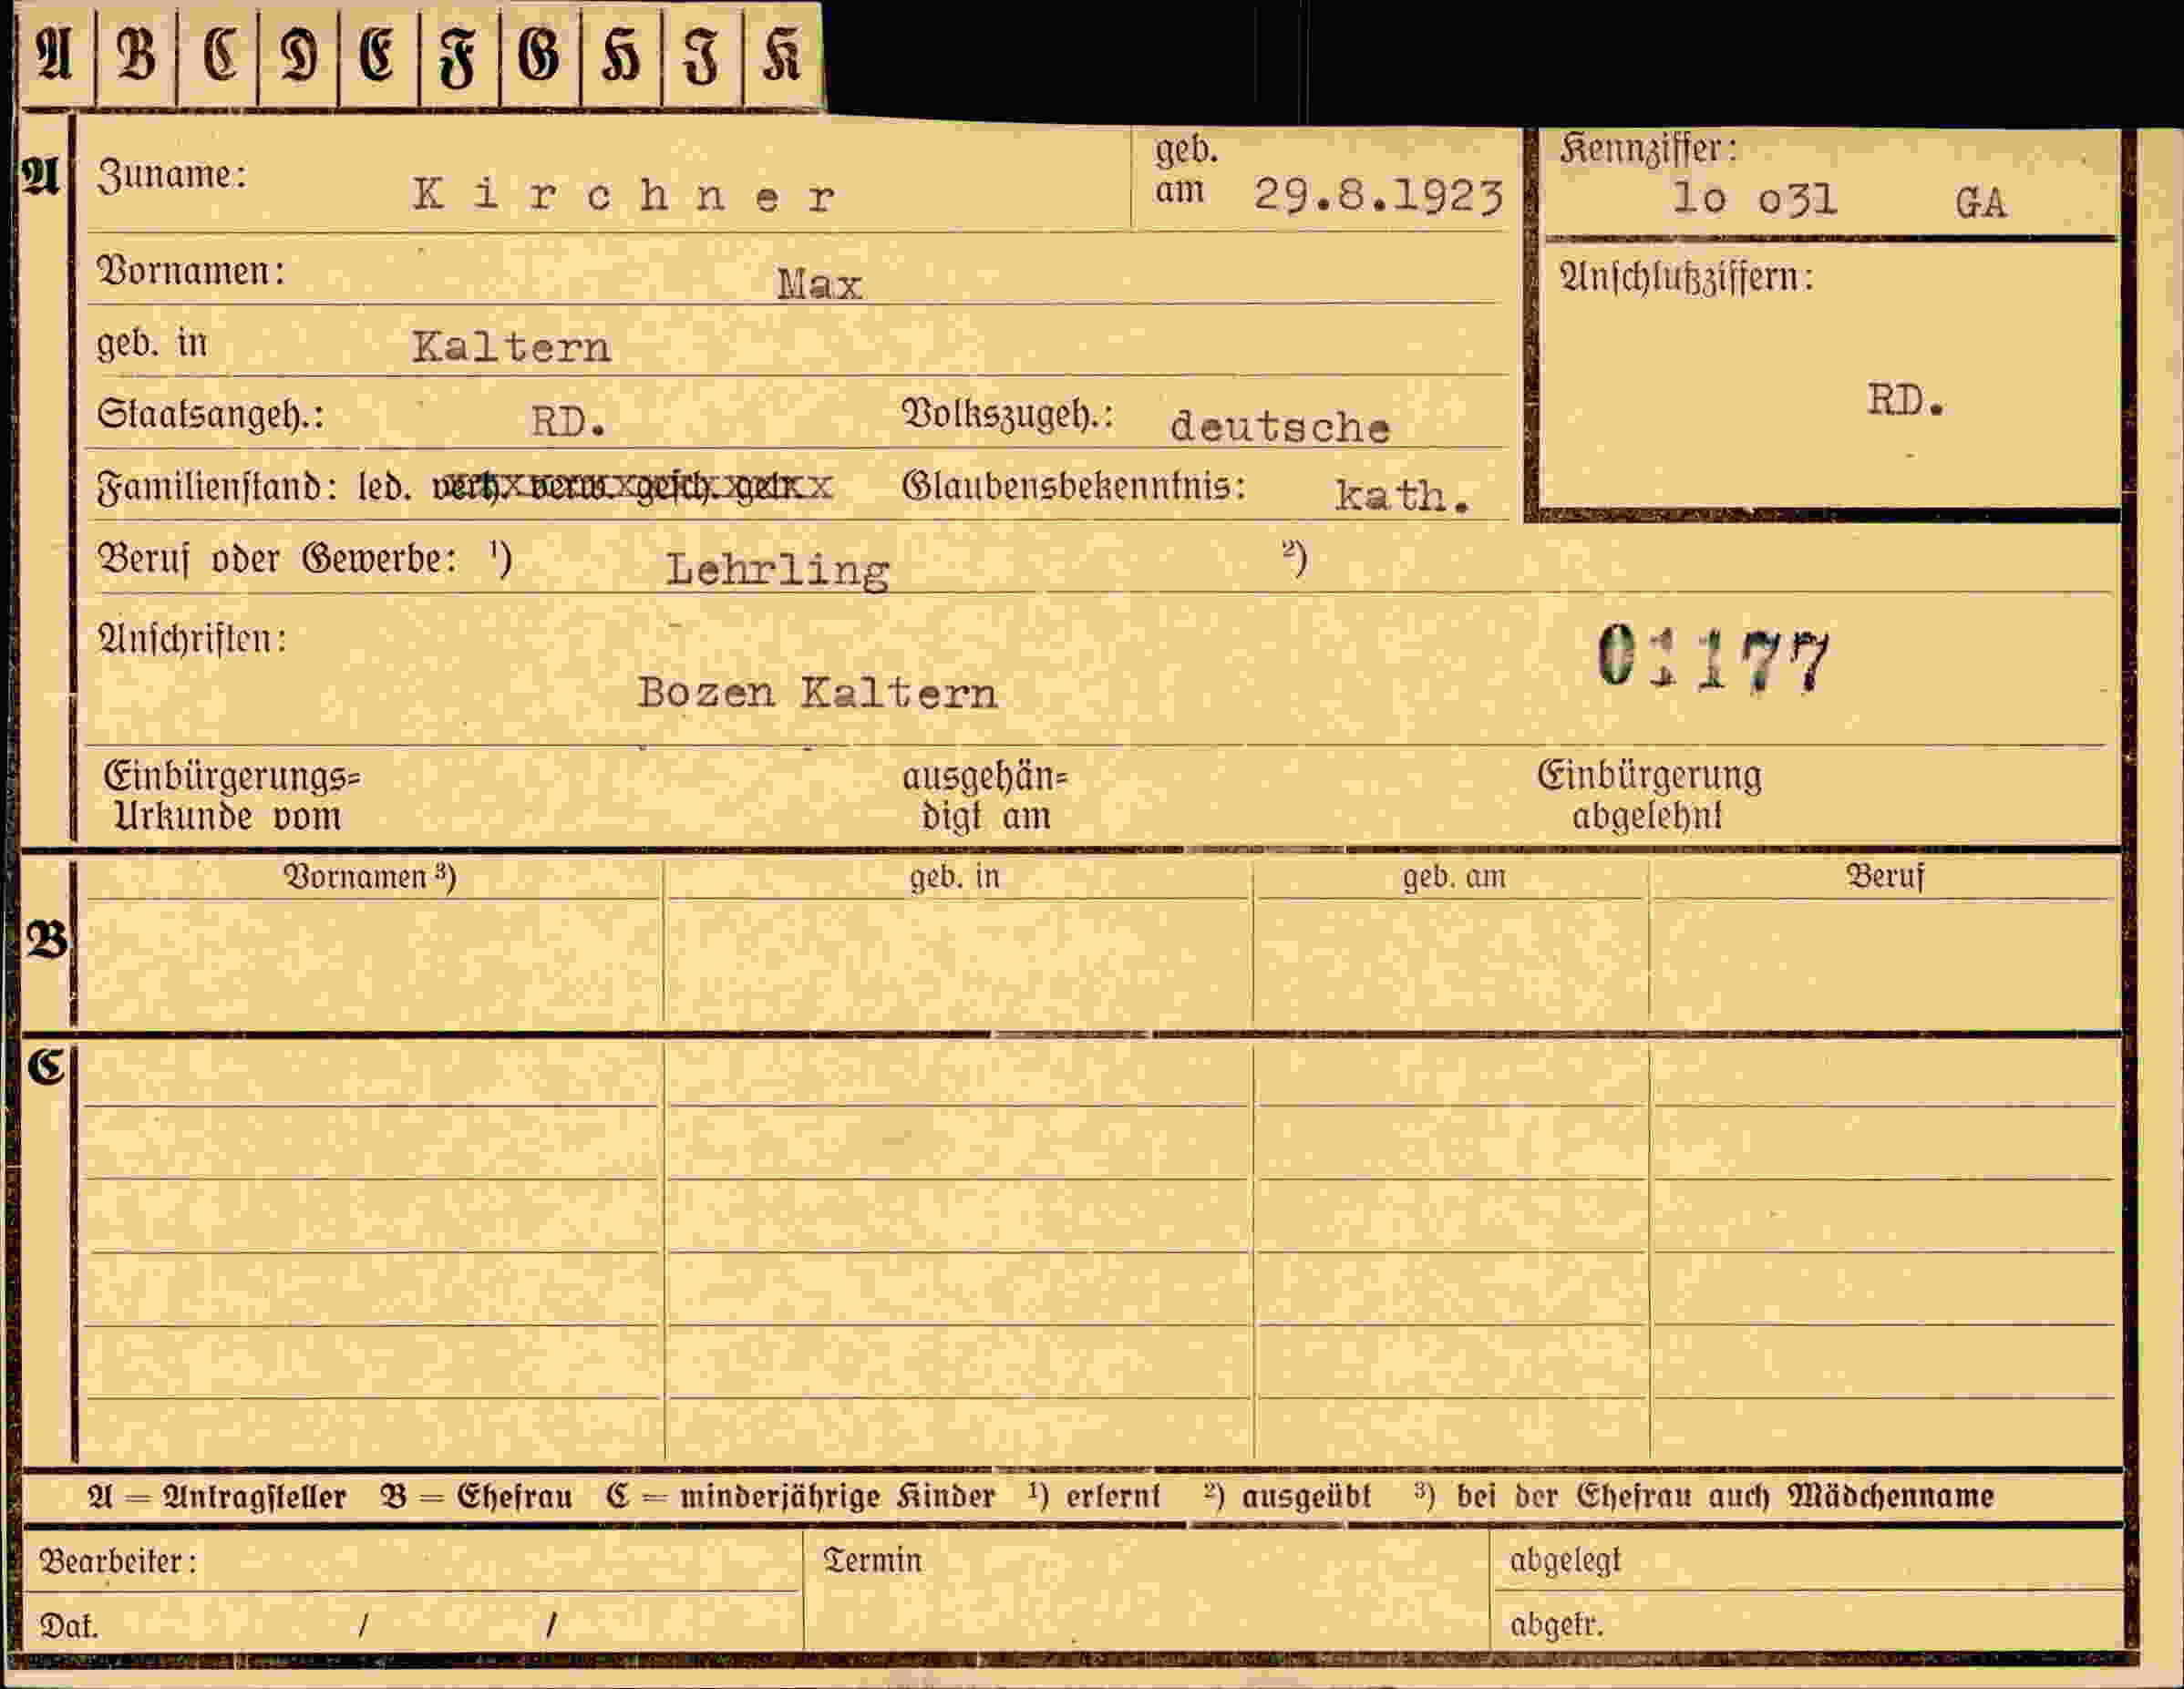 A B C D E F G H I K
A Zuname: Kirchner geb. am 29.8.1923 Kennziffer: lo o31 GA
Vornamen: Max Anschlußziffern:
geb. in Kaltern
Staatsangeh.: RD. Volkszugeh.: deutsche RD.
Familienstand: led. verh. verw. gesch. getr. Glaubensbekenntnis: kath.
Beruf oder Gewerbe: ¹) Lehrling ²)
Anschriften: 01177
Bozen Kaltern
Einbürgerungs= ausgehän= Einbürgerung
Urkunde vom digt am abgelehnt
Vornamen ³) geb. in geb. am Beruf
B
C
A = Antragsteller B = Ehefrau C = minderjährige Kinder ¹) erlernt ²) ausgeübt ³) bei der Ehefrau auch Mädchenname
Bearbeiter: Termin abgelegt
Dat. / / abgetr.